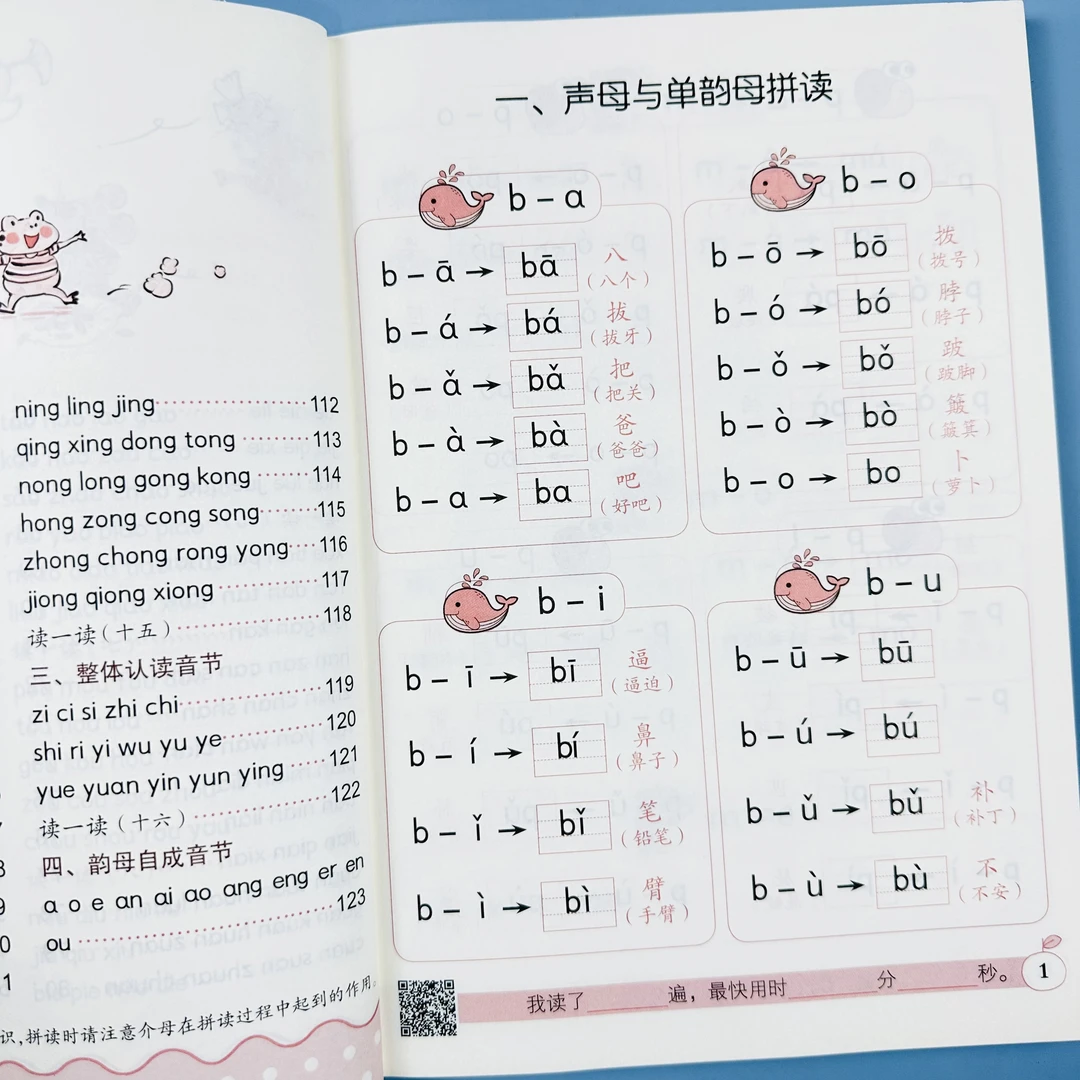 ning ling jing 112
qing xing dong tong 113
nong long gong kong 114
hong zong cong song 115
zhong chong rong yong 116
jiong qiong xiong 117
读一读(十五) 118
三、整体认读音节
zi ci si zhi chi 119
shi ri yi wu yu ye 120
yue yuan yin yun ying 121
读一读(十六) 122
四、韵母自成音节
a o e an ai ao ang eng er en
ou 123
识,拼读时请注意介母在拼读过程中起到的作用。
一、声母与单韵母拼读
b – a
b – ā → bā 八
(八个)
b – á → bá 拔
(拔牙)
b – ǎ → bǎ 把
(把关)
b – à → bà 爸
(爸爸)
b – a → ba 吧
(好吧)
b – o
b – ō → bō 拨
(拨号)
b – ó → bó 脖
(脖子)
b – ǒ → bǒ 跛
(跛脚)
b – ò → bò 簸
(簸箕)
b – o → bo 卜
(萝卜)
b – i
b – ī → bī 逼
(逼迫)
b – í → bí 鼻
(鼻子)
b – ǐ → bǐ 笔
(铅笔)
b – ì → bì 臂
(手臂)
b – u
b – ū → bū
b – ú → bú
b – ǔ → bǔ 补
(补丁)
b – ù → bù 不
(不安)
我读了______遍，最快用时______分______秒。 1